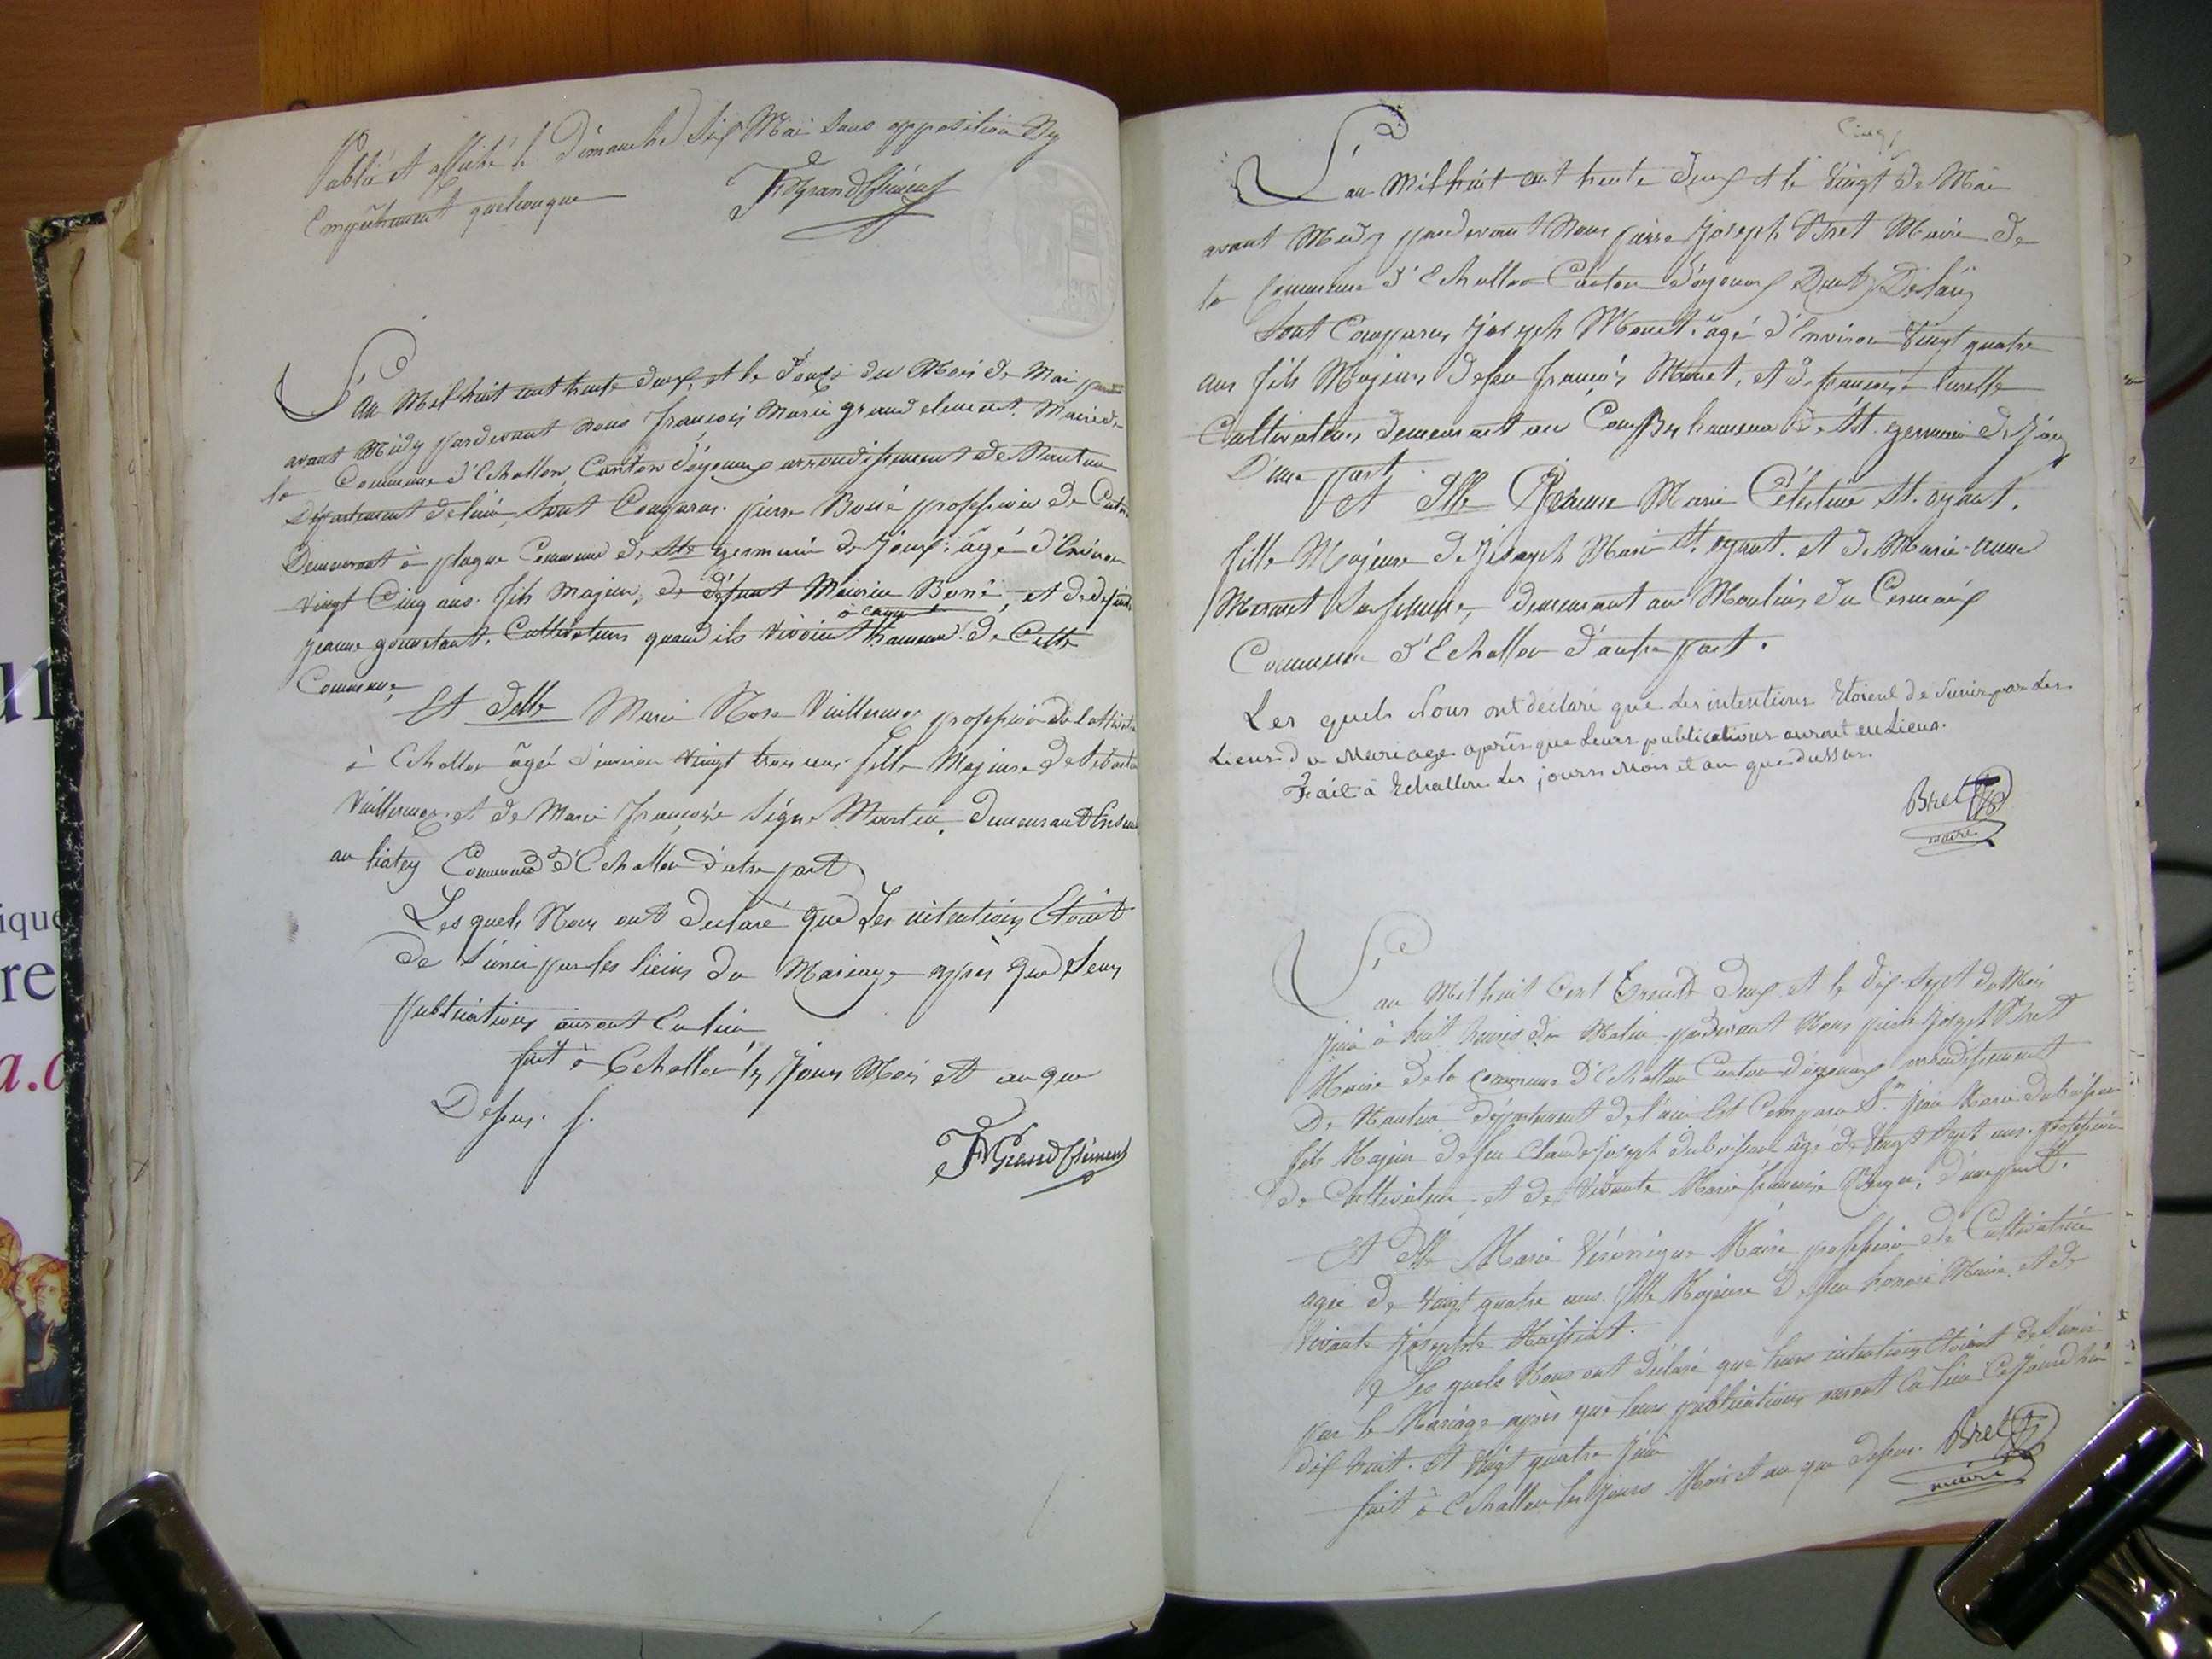 Publié et affiché le Dimanche six Mai sans opposition Ny
Empêchement quelconque
FMGrandClément
L'an Mil huit cent trente deux, et le douze du Mois de Mai
avant Midy pardevant nous françois Marie grand clement. Maire de
la Commune d'Echallon, Canton d'oyonnax arrondissement de Nantua
Département de l'ain, sont Comparus. pierre Boné profession de
Demeurant à plagne Commune de St germain de Joux: âgé d'Environ
vingt Cinq ans. fils majeur, de défunt Maurice Boné, et de
jeanne goussetant. Cultivateurs quand ils vivoient hameau de Cette
Commune,
Et Delle Marie Rose Vuillermoz profession de
à Echallon âgée d'environ vingt trois ans fille Majeure de
Vuillermoz et de Marie françoise Martin, demeurant
au Commune d'Echallon d'autre part
Les quels Nous ont declaré que Les intentions Etoient
de s'unir par les liens du Mariage après que Leurs
publications auront Eu lieu
fait à Echallon les Jours Mois et an que
Dessus.
FMGrandClément
Cinq
L'an Mil huit cent trente deux et le Vingt de Mai
avant Midy pardevant Nous pierre Joseph Bret Maire de
la Commune d'Echallon Canton d'oyonnax Dept De l'ain
Sont Comparus Joseph Monet. âgé d'Environ Vingt quatre
ans fils Majeur De feu françois Monet, et de françoise
Cultivateurs demeurant au hameau de St. germain de Joux
D'une part
Et Dlle Marie Célestine St. oyant.
fille Majeure de Joseph Marie St. oyant. et de Marie-anne
Mermet Sa femme, demeurant au Moulin du
Commune d'Echallon d'autre part.
Les quels Nous ont déclaré que Les intentions Etoient de S'unir par Les
Liens du Mariage après que Leurs publications auront eu Lieu.
Fait à Echallon Les jours Mois et an que dessus.
Bret
maire
L'an Mil huit Cent Trente Deux et le dix Sept du Mois
Juin à huit heures du Matin pardevant Nous pierre Joseph Bret
Maire de la Commune D'Echallon Canton d'oyonnax arrondissement
De Nantua département de l'ain Est Comparu Sr. Jean Marie Dubuisson
fils Majeur de feu Claude Joseph dubuisson âgé de Vingt Sept ans. profession
de Cultivateur, et de Vivante Marie françoise D'une part.
Et Dlle Marie Véronique Maire profession de Cultivatrice
agée De Vingt quatre ans. fille Majeure De feu honoré Maire et de
Vivante Josephte Maissiat.
Les quels Nous ont Déclaré que leurs intentions Etoient de S'unir
par le Mariage après que leurs publications auront Eu lieu Cejourd'hui
dix huit. et Vingt quatre Juin
fait à Echallon les Jours Mois et an que dessus. Bret
maire